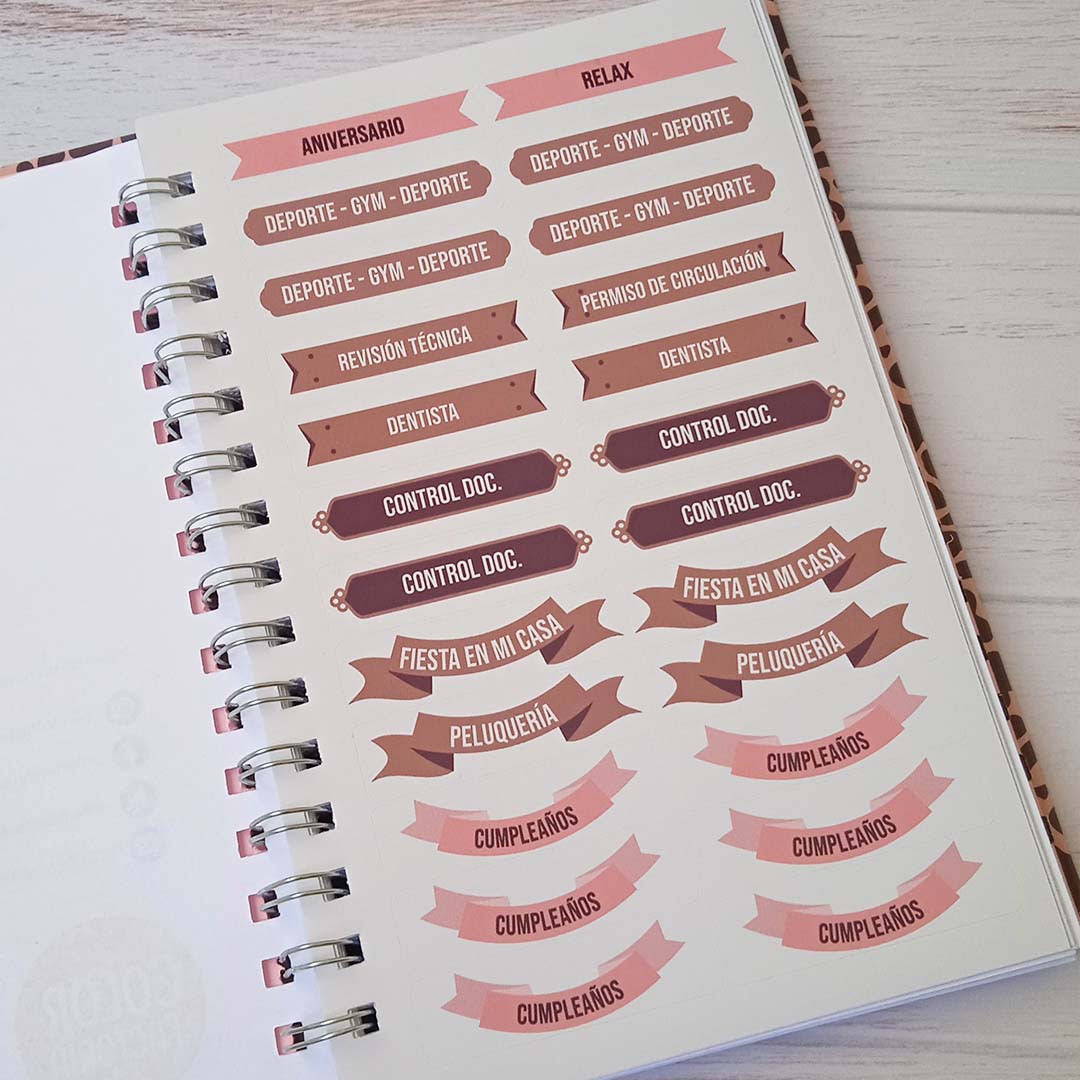 ANIVERSARIO
RELAX
DEPORTE - GYM - DEPORTE
DEPORTE - GYM - DEPORTE
DEPORTE - GYM - DEPORTE
DEPORTE - GYM - DEPORTE
REVISIÓN TÉCNICA
PERMISO DE CIRCULACIÓN
DENTISTA
DENTISTA
CONTROL DOC.
CONTROL DOC.
CONTROL DOC.
CONTROL DOC.
FIESTA EN MI CASA
FIESTA EN MI CASA
PELUQUERÍA
PELUQUERÍA
CUMPLEAÑOS
CUMPLEAÑOS
CUMPLEAÑOS
CUMPLEAÑOS
CUMPLEAÑOS
CUMPLEAÑOS